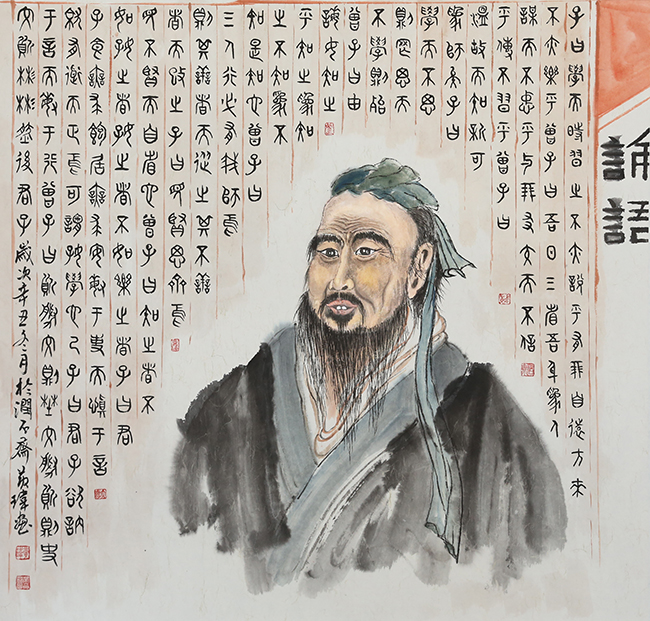 論語
子曰學而時習之不亦說乎有朋自遠方來
不亦樂乎曾子曰吾日三省吾身為人
謀而不忠乎與朋友交而不信
乎傳不習乎曾子曰
溫故而知新可
為師矣子曰
學而不思
則罔思而
不學則殆
曾子曰由
誨女知之
乎知之為知
之不知為不
知是知也曾子曰
三人行必有我師焉
則其善者而從之其不善
者而改之子曰見賢思齊焉
見不賢而自省也曾子曰知之者不
如好之者好之者不如樂之者子曰君
子食無求飽居無求安敏于事而慎于言
就有道而正焉可謂好學也已子曰君子欲訥
于言而敏于行曾子曰質勝文則野文勝質則史
文質彬彬然後君子歲次辛丑冬月於潤石齋黃瑋畫